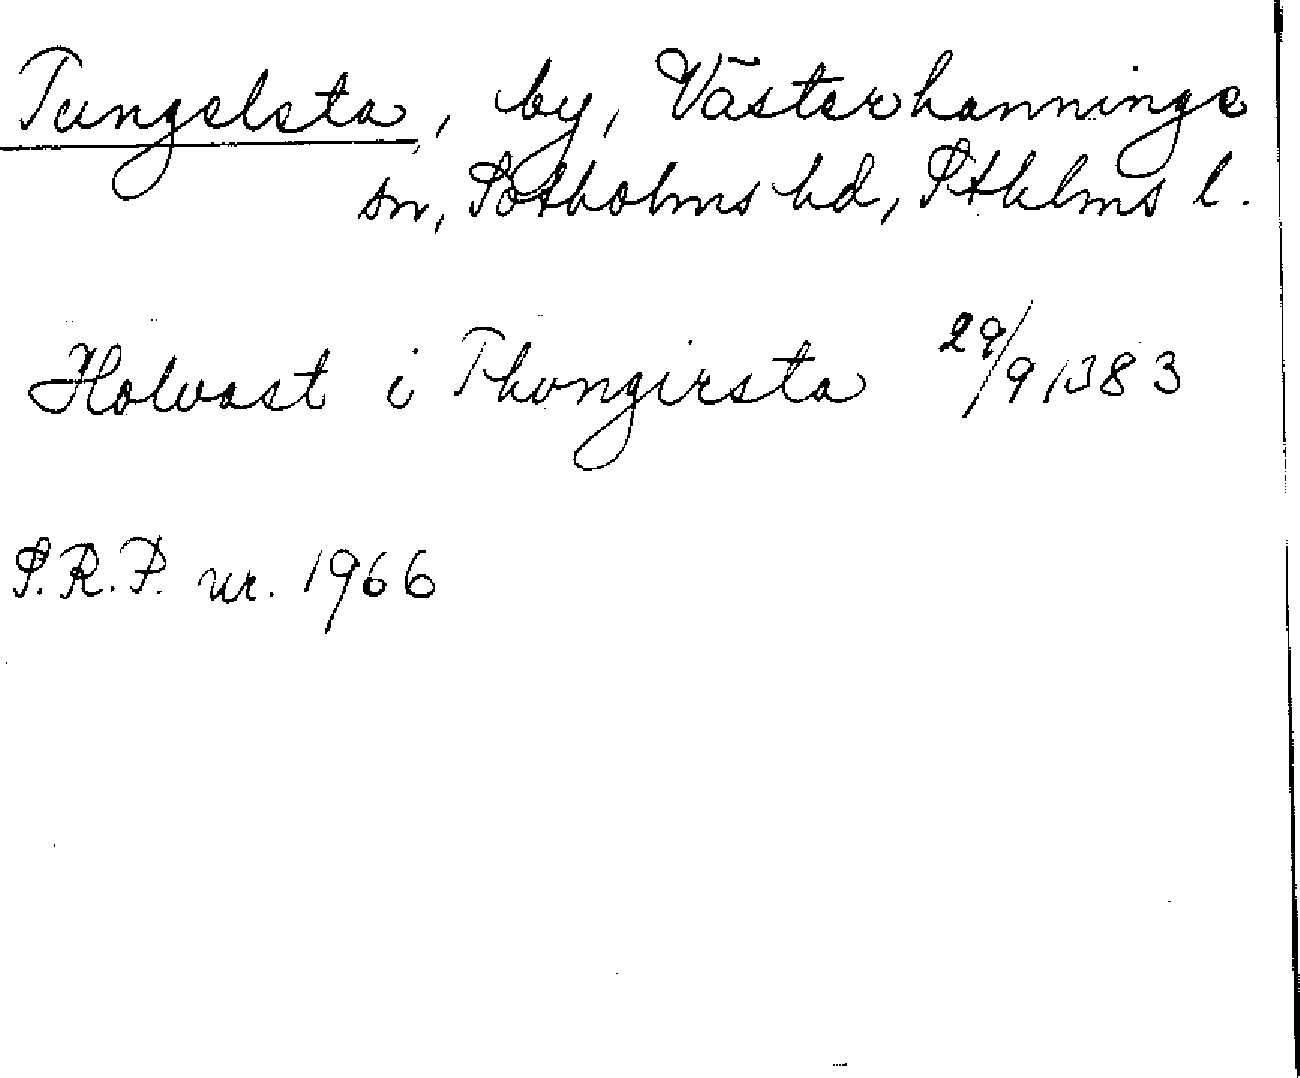 Tungelsta, by, Västerhanninge
sn, Sotholms hd, Sthlms l.
Holvast i Thongirsta 29/9 1383
S.R.P. nr. 1966